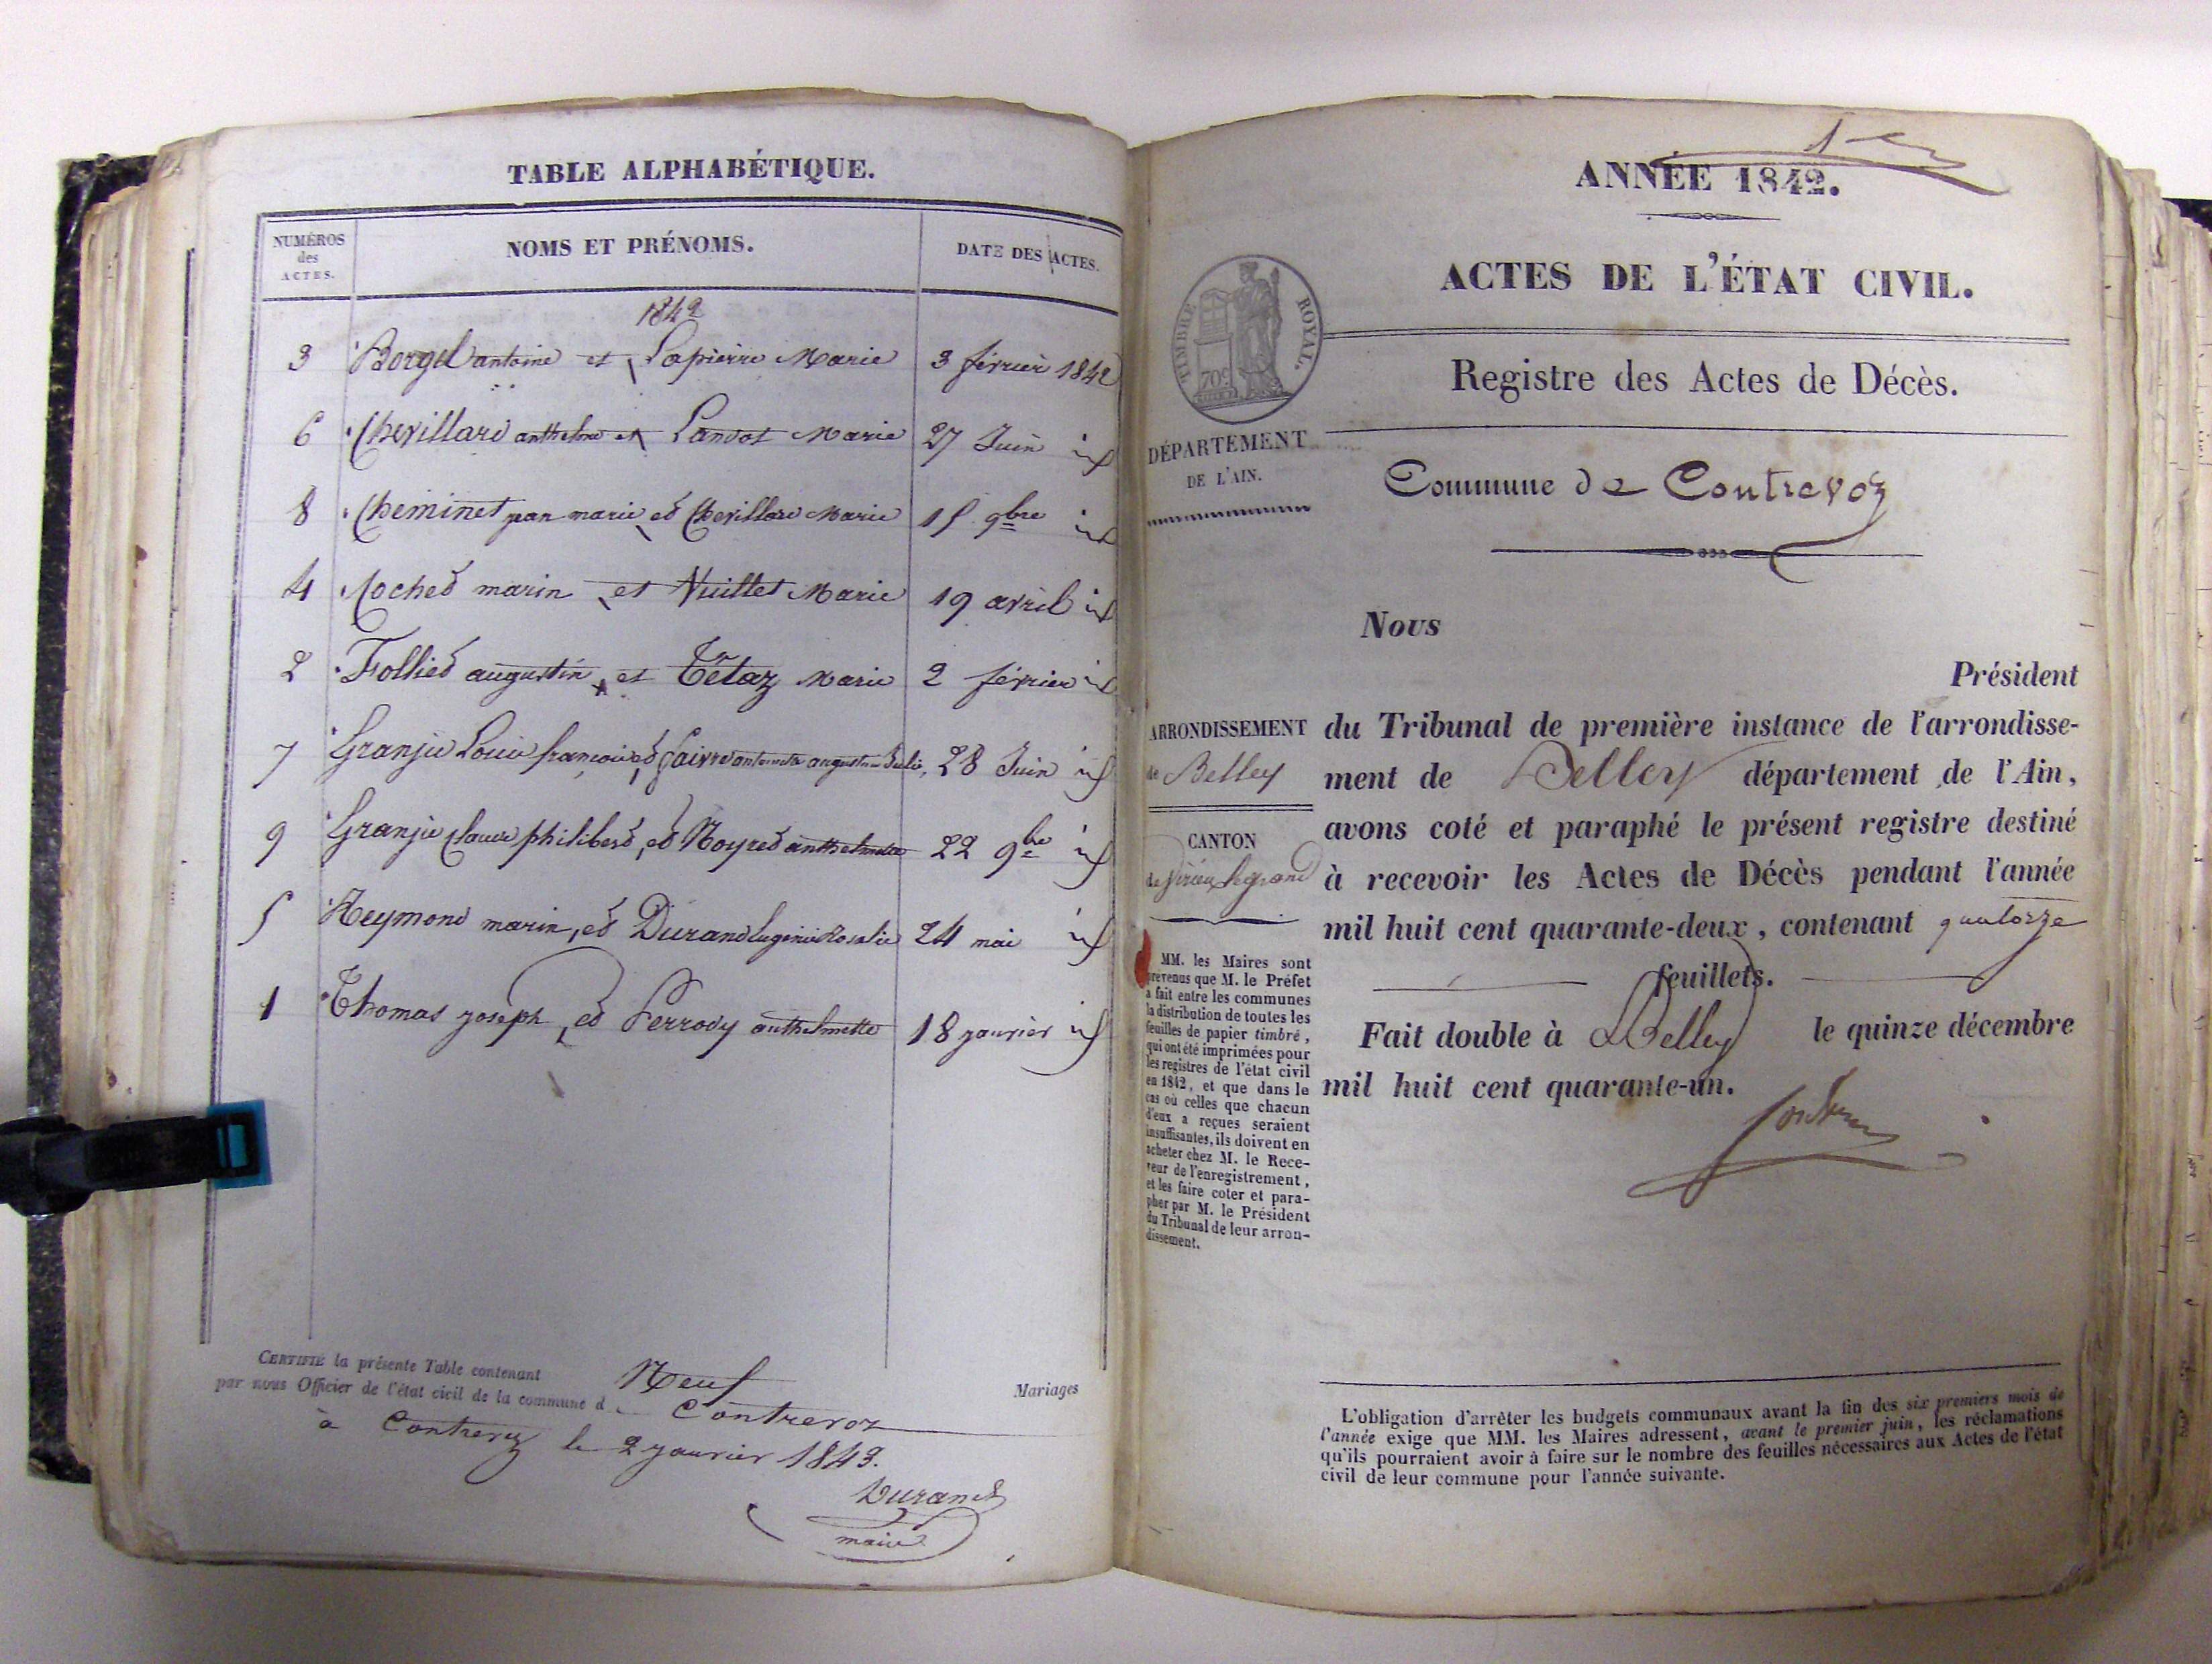 TABLE ALPHABÉTIQUE.
NUMÉROS des ACTES.
NOMS ET PRÉNOMS.
DATE DES ACTES.
1842
3 Borgel antoine et Lapierre Marie 3 février 1842
6 Chevillard anthelme et Landot Marie 27 Juin id
8 Cheminet jean marie et Chevillard Marie 15 9bre id
4 Cochet marin et Vuillet Marie 19 avril id
2 Folliet augustin et Tétaz Marie 2 février id
7 Granju Louis françois et faivre antoinette augustine Julie, 28 Juin id
9 Granju Claude philibert, et Noyret anthelmette 22 9bre id
5 Reymond marin, et Durand Eugénie Rosalie 24 mai id
1 Thomas joseph, et Perrody anthelmette 18 janvier id
CERTIFIÉ la présente Table contenant Neuf Mariages
par nous Officier de l'état civil de la commune d Contrevoz
à Contrevoz le 2 janvier 1843.
Durand
maire
1er
ANNÉE 1842.
ACTES DE L'ÉTAT CIVIL.
TIMBRE ROYAL.
70c
Registre des Actes de Décès.
DÉPARTEMENT
DE L'AIN.
Commune de Contrevoz
Nous
Président
ARRONDISSEMENT
de Belley
CANTON
de Virieu le grand
du Tribunal de première instance de l'arrondisse-
ment de Belley département de l'Ain,
avons coté et paraphé le présent registre destiné
à recevoir les Actes de Décès pendant l'année
mil huit cent quarante-deux, contenant quatorze
feuillets.
Fait double à Belley le quinze décembre
mil huit cent quarante-un.
MM. les Maires sont
prévenus que M. le Préfet
a fait entre les communes
la distribution de toutes les
feuilles de papier timbré,
qui ont été imprimées pour
les registres de l'état civil
en 1842, et que dans le
cas où celles que chacun
d'eux a reçues seraient
insuffisantes, ils doivent en
acheter chez M. le Rece-
veur de l'enregistrement,
et les faire coter et para-
pher par M. le Président
du Tribunal de leur arron-
dissement.
L'obligation d'arrêter les budgets communaux avant la fin des six premiers mois de
l'année exige que MM. les Maires adressent, avant le premier juin, les réclamations
qu'ils pourraient avoir à faire sur le nombre des feuilles nécessaires aux Actes de l'état
civil de leur commune pour l'année suivante.